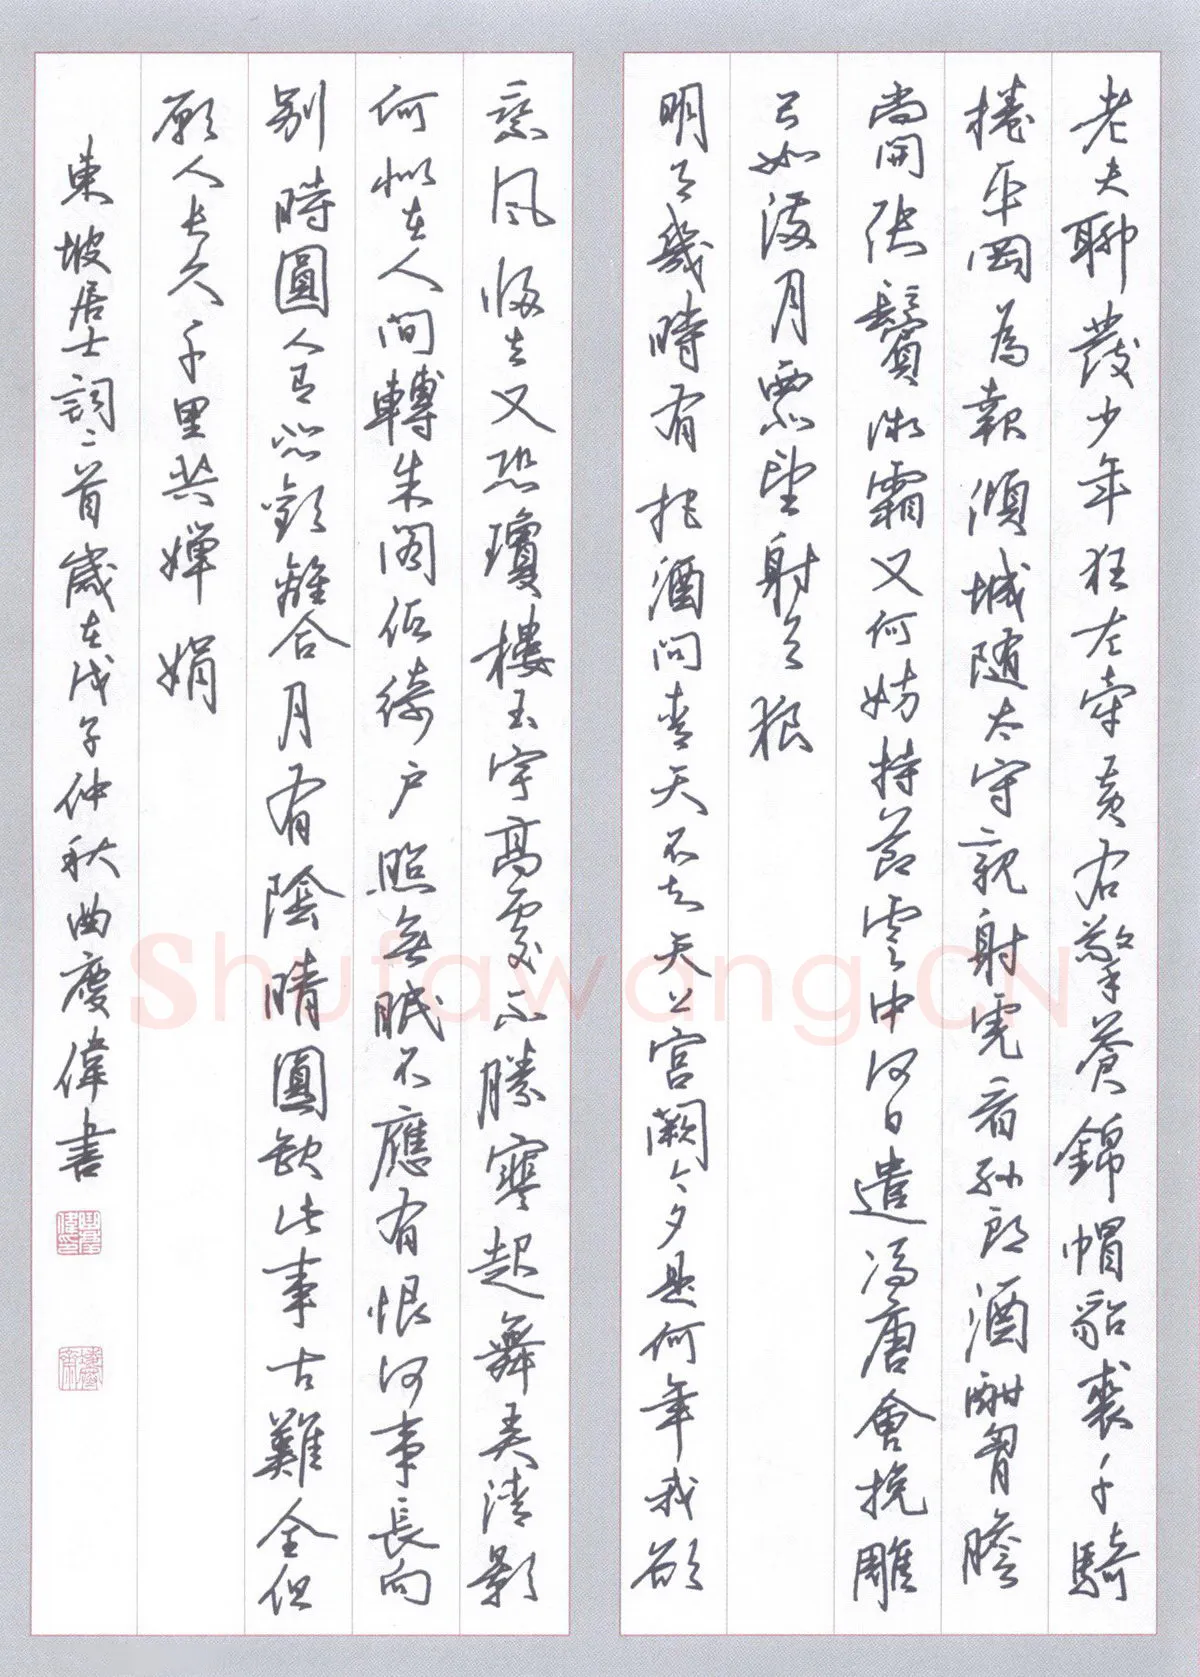 老夫聊發少年狂左牽黃右擎蒼錦帽貂裘千騎
捲平岡為報傾城隨太守親射虎看孫郎酒酣胸膽
尚開張鬢微霜又何妨持節雲中何日遣馮唐會挽雕
弓如滿月西北望射天狼
明月幾時有把酒問青天不知天上宮闕今夕是何年我欲
乘風歸去又恐瓊樓玉宇高處不勝寒起舞弄清影
何似在人間轉朱閣低綺戶照無眠不應有恨何事長向
別時圓人有悲歡離合月有陰晴圓缺此事古難全但
願人長久千里共嬋娟
東坡居士詞二首歲在戊子仲秋曲慶偉書
曲慶偉印
Shufawang.CN